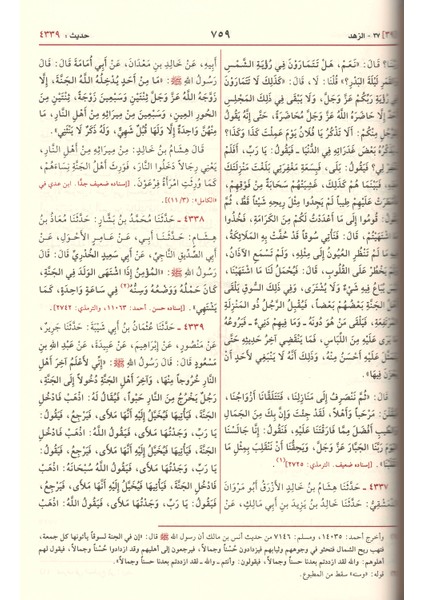 [٣٩] ٣٧ - الزهد ٧٥٩ حديث : ٤٣٣٩
قَالَ: «نَعَمْ، هَلْ تَتَمَارَوْنَ فِي رُؤْيَةِ الشَّمْسِ
لَيْلَةَ الْبَدْرِ؟» قُلْنَا: لَا، قَالَ: «كَذَلِكَ لَا تَتَمَارَوْنَ
فِي رُؤْيَةِ رَبِّكُمْ عَزَّ وَجَلَّ، وَلَا يَبْقَى فِي ذَلِكَ الْمَجْلِسِ
أَحَدٌ إِلَّا حَاضَرَهُ اللَّهُ عَزَّ وَجَلَّ مُحَاضَرَةً، حَتَّى إِنَّهُ يَقُولُ
لِلرَّجُلِ مِنْكُمْ: أَلَا تَذْكُرُ يَا فُلَانُ يَوْمَ عَمِلْتَ كَذَا وَكَذَا؟
فَيَقُولُ: يَا رَبِّ، أَفَلَمْ
تَغْفِرْ لِي؟ فَيَقُولُ: بَلَى، فَبِسَعَةِ مَغْفِرَتِي بَلَغْتَ مَنْزِلَتَكَ
هَذِهِ، فَبَيْنَمَا هُمْ كَذَلِكَ، غَشِيَتْهُمْ سَحَابَةٌ مِنْ فَوْقِهِمْ،
فَأَمْطَرَتْ عَلَيْهِمْ طِيباً لَمْ يَجِدُوا مِثْلَ رِيحِهِ شَيْئاً قَطُّ، ثُمَّ
يَقُولُ: قُومُوا إِلَى مَا أَعْدَدْتُ لَكُمْ مِنَ الْكَرَامَةِ، فَخُذُوا
مَا اشْتَهَيْتُمْ، قَالَ: فَنَأْتِي سُوقاً قَدْ حُفَّتْ بِهِ الْمَلَائِكَةُ،
فِيهِ مَا لَمْ تَنْظُرِ الْعُيُونُ إِلَى مِثْلِهِ، وَلَمْ تَسْمَعِ الْآذَانُ،
وَلَمْ يَخْطُرْ عَلَى الْقُلُوبِ، قَالَ: فَيُحْمَلُ لَنَا مَا اشْتَهَيْنَا،
لَيْسَ يُبَاعُ فِيهِ شَيْءٌ وَلَا يُشْتَرَى، وَفِي ذَلِكَ السُّوقِ يَلْقَى
أَهْلُ الْجَنَّةِ بَعْضُهُمْ بَعْضاً، فَيُقْبِلُ الرَّجُلُ ذُو الْمَنْزِلَةِ
الْمُرْتَفِعَةِ، فَيَلْقَى مَنْ هُوَ دُونَهُ - وَمَا فِيهِمْ دَنِيءٌ - فَيَرُوعُهُ
مَا يَرَى عَلَيْهِ مِنَ اللِّبَاسِ، فَمَا يَنْقَضِي آخِرُ حَدِيثِهِ حَتَّى
يَتَمَثَّلَ عَلَيْهِ أَحْسَنُ مِنْهُ، وَذَلِكَ أَنَّهُ لَا يَنْبَغِي لِأَحَدٍ أَنْ
يَحْزَنَ فِيهَا».
قَالَ: «ثُمَّ نَنْصَرِفُ إِلَى مَنَازِلِنَا، فَتَتَلَقَّانَا أَزْوَاجُنَا،
فَيَقُلْنَ: مَرْحَباً وَأَهْلاً، لَقَدْ جِئْتَ وَإِنَّ بِكَ مِنَ الْجَمَالِ
وَالطِّيبِ أَفْضَلَ مِمَّا فَارَقْتَنَا عَلَيْهِ، فَنَقُولُ: إِنَّا جَالَسْنَا
الْيَوْمَ رَبَّنَا الْجَبَّارَ عَزَّ وَجَلَّ، وَيَحِقُّنَا أَنْ نَنْقَلِبَ بِمِثْلِ مَا
انْقَلَبْنَا». [إسناده ضعيف. الترمذي: ٢٧٢٥](١).
٤٣٣٧ حَدَّثَنَا هِشَامُ بْنُ خَالِدٍ الْأَزْرَقُ أَبُو مَرْوَانَ
الدِّمَشْقِيُّ: حَدَّثَنَا خَالِدُ بْنُ يَزِيدَ بْنِ أَبِي مَالِكٍ، عَنْ
أَبِيهِ، عَنْ خَالِدِ بْنِ مَعْدَانَ، عَنْ أَبِي أُمَامَةَ قَالَ: قَالَ
رَسُولُ اللَّهِ ﷺ: «مَا مِنْ أَحَدٍ يُدْخِلُهُ اللَّهُ الْجَنَّةَ، إِلَّا
زَوَّجَهُ اللَّهُ عَزَّ وَجَلَّ ثِنْتَيْنِ وَسَبْعِينَ زَوْجَةً، ثِنْتَيْنِ مِنَ
الْحُورِ الْعِينِ، وَسَبْعِينَ مِنْ مِيرَاثِهِ مِنْ أَهْلِ النَّارِ، مَا
مِنْهُنَّ وَاحِدَةٌ إِلَّا وَلَهَا قُبُلٌ شَهِيٌّ، وَلَهُ ذَكَرٌ لَا يَنْثَنِي».
قَالَ هِشَامُ بْنُ خَالِدٍ: مِنْ مِيرَاثِهِ مِنْ أَهْلِ النَّارِ،
يَعْنِي رِجَالاً دَخَلُوا النَّارَ، فَوَرِثَ أَهْلُ الْجَنَّةِ نِسَاءَهُمْ،
كَمَا وُرِثَتِ امْرَأَةُ فِرْعَوْنَ. [إسناده ضعيف جداً. ابن عدي في
«الكامل»: (١١/٣)].
٤٣٣٨ - حَدَّثَنَا مُحَمَّدُ بْنُ بَشَّارٍ: حَدَّثَنَا مُعَاذُ بْنُ
هِشَامٍ: حَدَّثَنَا أَبِي، عَنْ عَامِرٍ الْأَحْوَلِ، عَنْ
أَبِي الصِّدِّيقِ النَّاجِيِّ، عَنْ أَبِي سَعِيدٍ الْخُدْرِيِّ قَالَ: قَالَ
رَسُولُ اللَّهِ ﷺ: «الْمُؤْمِنُ إِذَا اشْتَهَى الْوَلَدَ فِي الْجَنَّةِ،
كَانَ حَمْلُهُ وَوَضْعُهُ وَسِنُّهُ(٢) فِي سَاعَةٍ وَاحِدَةٍ، كَمَا
يَشْتَهِي». [إسناده حسن. أحمد: ١١٠٦٣، والترمذي: ٢٧٤٢].
٤٣٣٩ - حَدَّثَنَا عُثْمَانُ بْنُ أَبِي شَيْبَةَ: حَدَّثَنَا جَرِيرٌ،
عَنْ مَنْصُورٍ، عَنْ إِبْرَاهِيمَ، عَنْ عَبِيدَةَ، عَنْ عَبْدِ اللَّهِ بْنِ
مَسْعُودٍ قَالَ: قَالَ رَسُولُ اللَّهِ ﷺ: «إِنِّي لَأَعْلَمُ آخِرَ أَهْلِ
النَّارِ خُرُوجاً مِنْهَا، وَآخِرَ أَهْلِ الْجَنَّةِ دُخُولاً إِلَى الْجَنَّةِ،
رَجُلٌ يَخْرُجُ مِنَ النَّارِ حَبْواً، فَيُقَالُ لَهُ: اذْهَبْ فَادْخُلِ
الْجَنَّةَ، فَيَأْتِيهَا فَيُخَيَّلُ إِلَيْهِ أَنَّهَا مَلْأَى، فَيَرْجِعُ، فَيَقُولُ:
يَا رَبِّ، وَجَدْتُهَا مَلْأَى، فَيَقُولُ اللَّهُ: اذْهَبْ فَادْخُلِ
الْجَنَّةَ، فَيَأْتِيهَا فَيُخَيَّلُ إِلَيْهِ أَنَّهَا مَلْأَى، فَيَرْجِعُ، فَيَقُولُ:
يَا رَبِّ، وَجَدْتُهَا مَلْأَى، فَيَقُولُ اللَّهُ سُبْحَانَهُ: اذْهَبْ فَادْخُلِ
الْجَنَّةَ، فَيَأْتِيهَا فَيُخَيَّلُ إِلَيْهِ أَنَّهَا مَلْأَى، فَيَرْجِعُ،
فَيَقُولُ: يَا رَبِّ، وَجَدْتُهَا مَلْأَى، فَيَقُولُ اللَّهُ: اذْهَبْ
وأخرج أحمد: ١٤٠٣٥، ومسلم: ٧١٤٦ من حديث أنس بن مالك أن رسول الله ﷺ قال: «إن في الجنة لسوقاً يأتونها كل جمعة،
فتهب ريح الشمال فتحثو في وجوههم وثيابهم فيزدادون حُسناً وجمالاً، فيرجعون إلى أهليهم وقد ازدادوا حُسناً وجمالاً، فيقول لهم
أهلوهم: والله لقد ازددتم بعدنا حسناً وجمالاً، فيقولون: وأنتم ـ والله ـ لقد ازددتم بعدنا حسناً وجمالاً».
قوله: «وسنه» سقط من المطبوع.